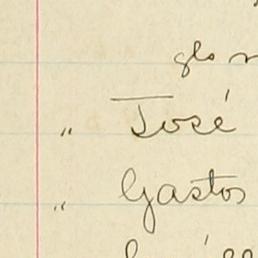 glo
" José
" Gastos